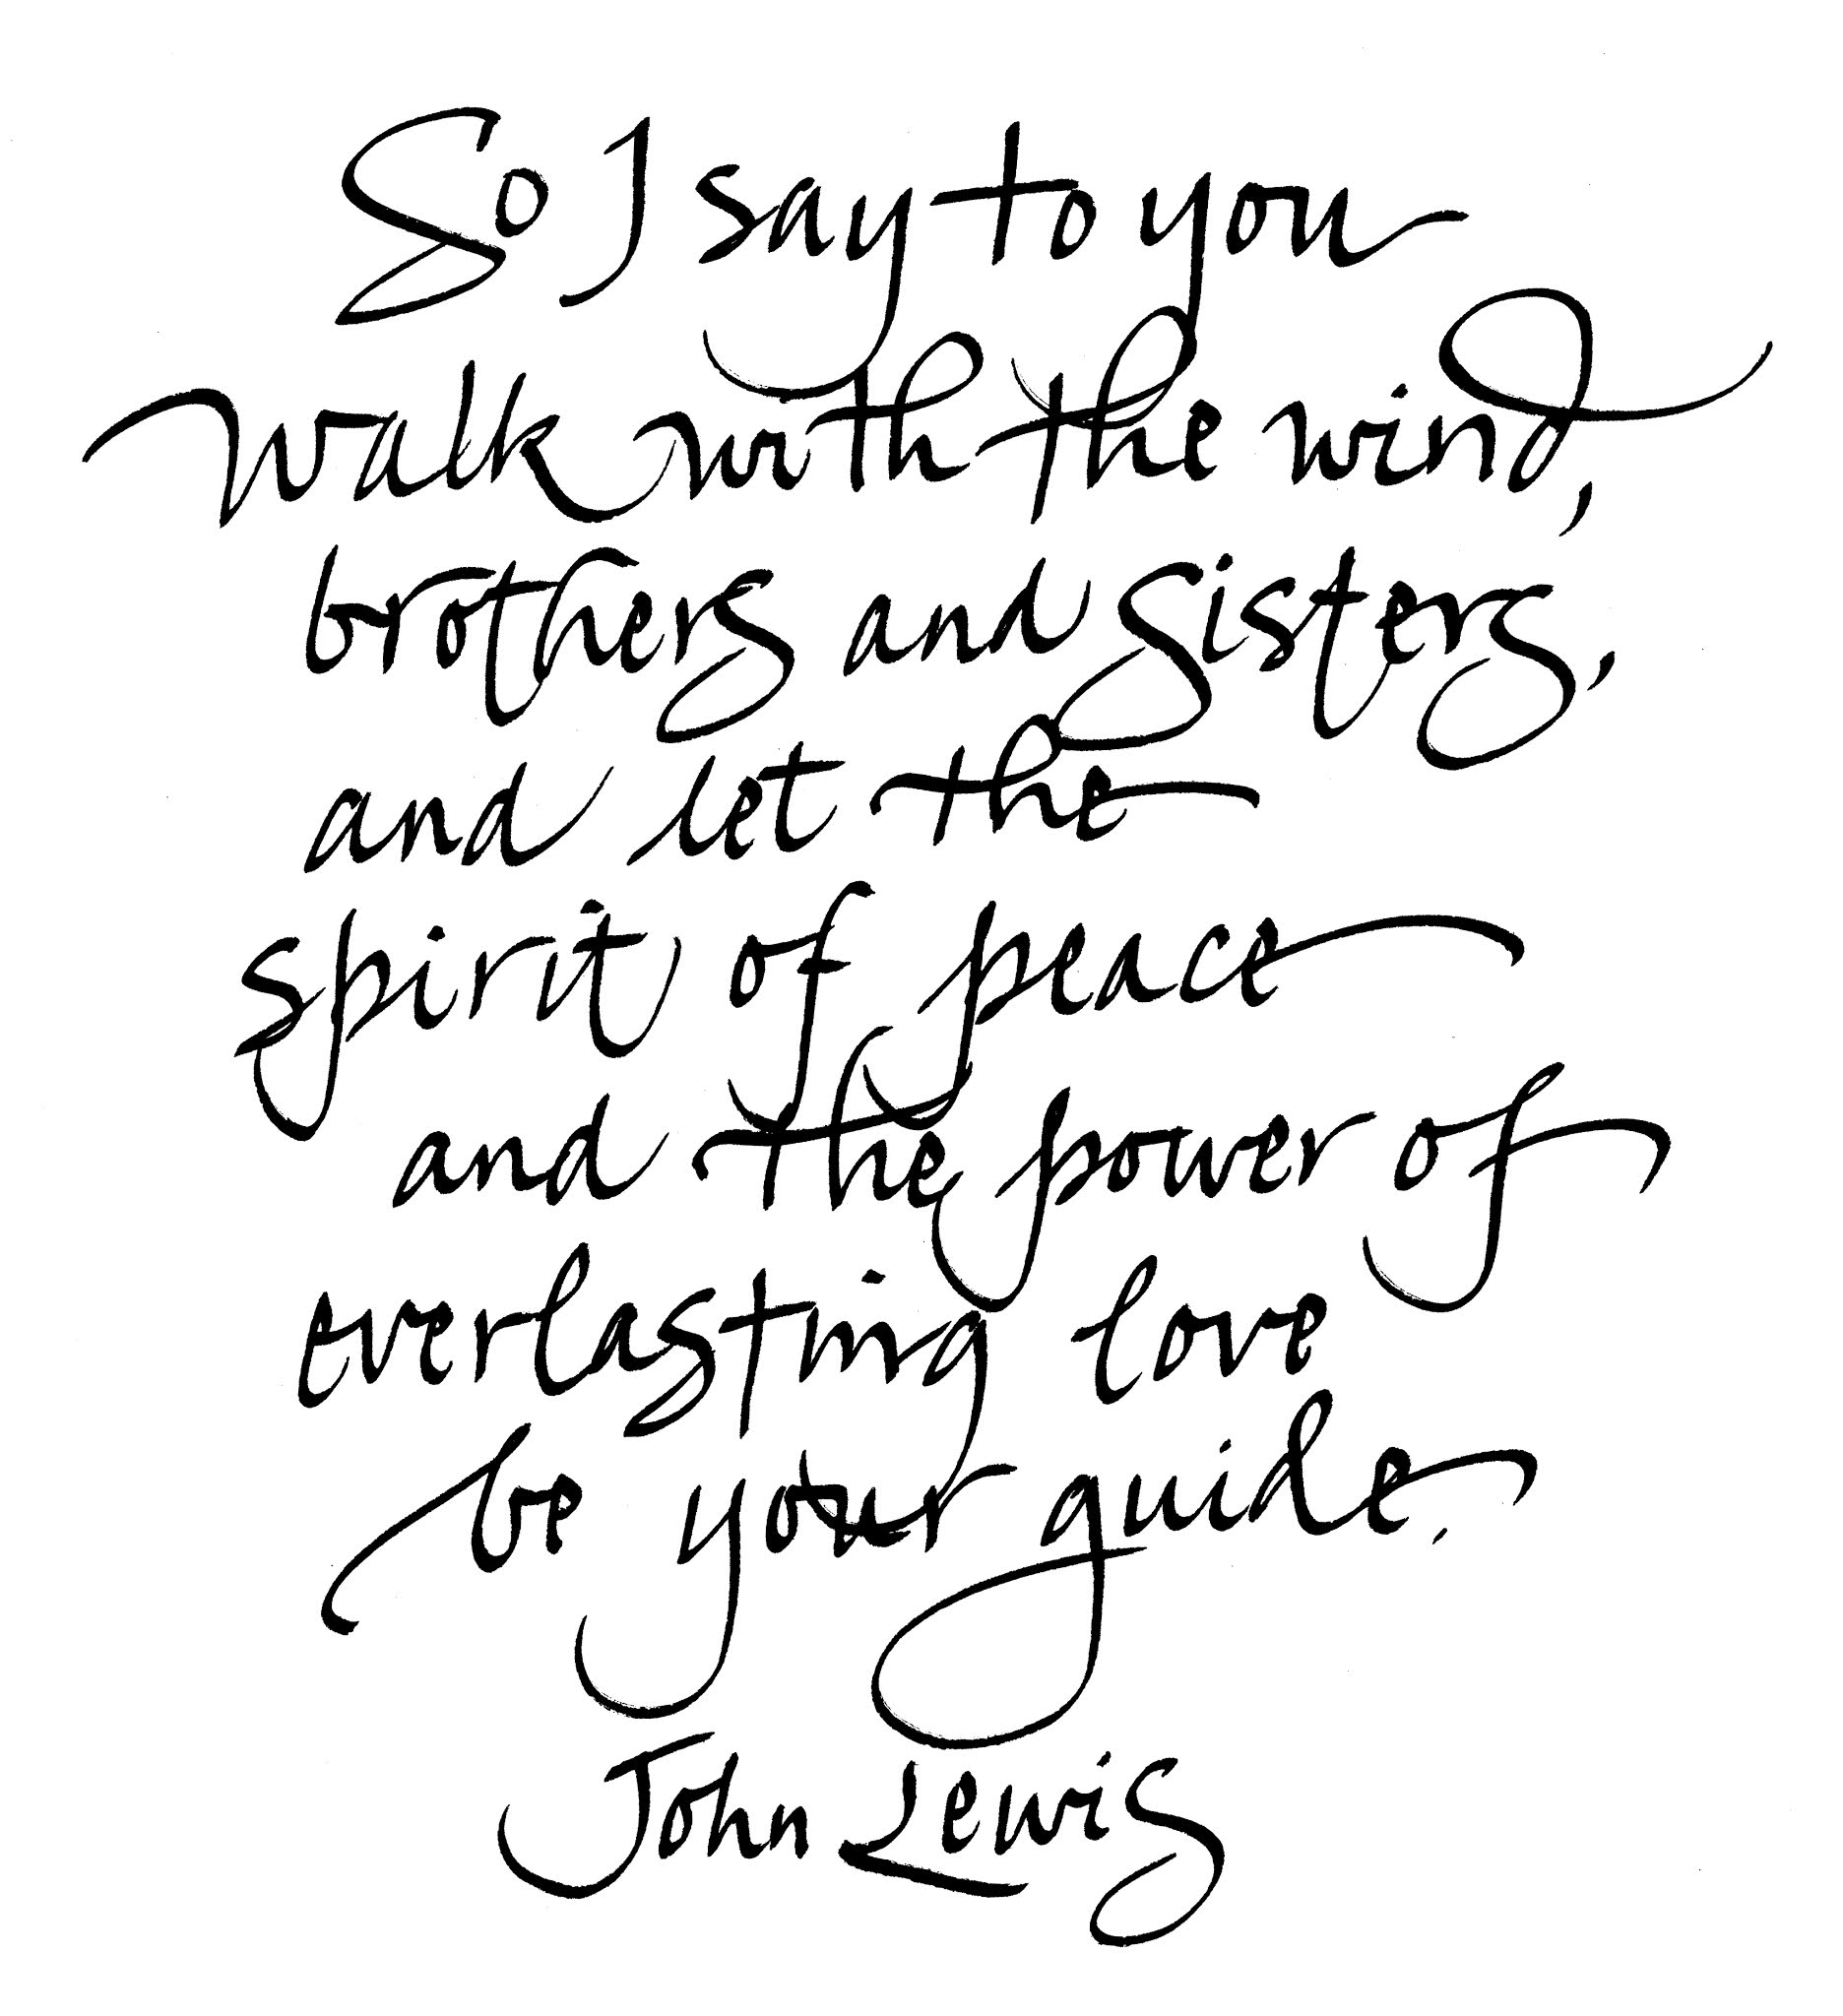 So I say to you
walk with the wind,
brothers and sisters,
and let the
spirit of peace
and the power of
everlasting love
be your guide.
John Lewis